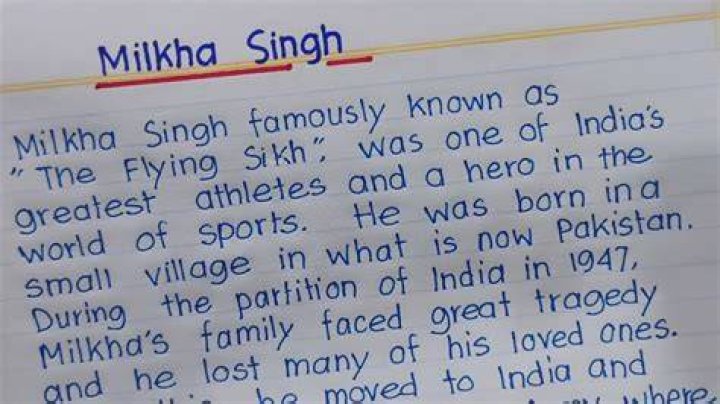 Milkha Singh
Milkha Singh famously known as
"The Flying Sikh", was one of India's
greatest athletes and a hero in the
world of sports. He was born in a
small village in what is now Pakistan.
During the partition of India in 1947,
Milkha's family faced great tragedy
and he lost many of his loved ones.
he moved to India and
where